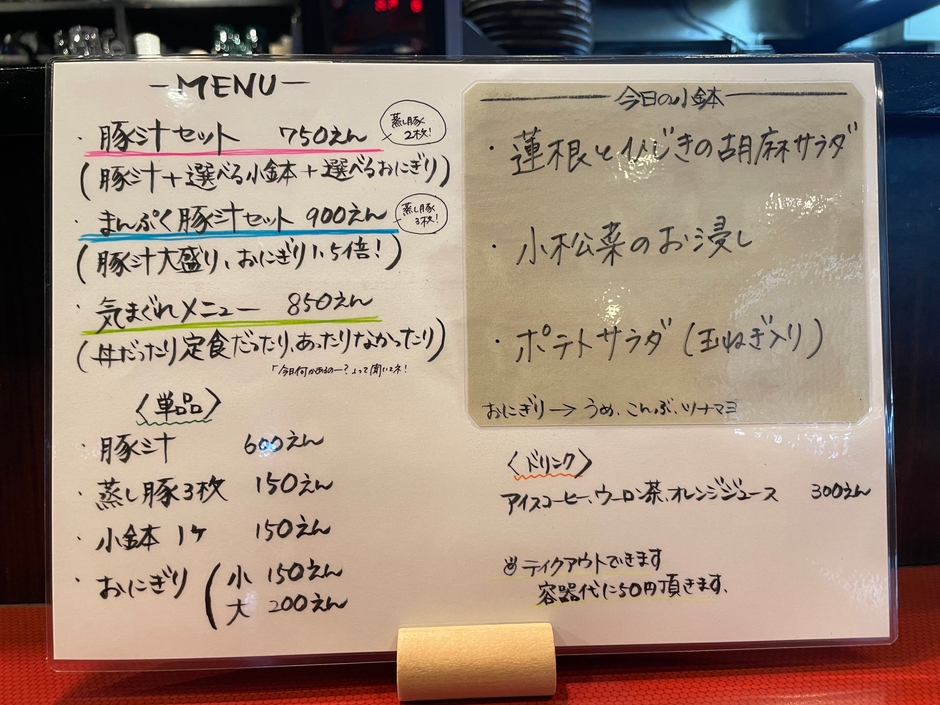 -MENU-
・豚汁セット 750えん
蒸し豚
2枚!
(豚汁+選べる小鉢+選べるおにぎり)
・まんぷく豚汁セット 900えん
蒸し豚
3枚!
(豚汁大盛り、おにぎり1.5倍!)
・気まぐれメニュー 850えん
(丼だったり定食だったり、あったりなかったり)
「今日何かあるのー?」って聞いてネ!
〈単品〉
・豚汁 600えん
・蒸し豚3枚 150えん
・小鉢 1ケ 150えん
・おにぎり (小 150えん
大 200えん
今日の小鉢
・蓮根とひじきの胡麻サラダ
・小松菜のお浸し
・ポテトサラダ(玉ねぎ入り)
おにぎり→うめ、こんぶ、ツナマヨ
〈ドリンク〉
アイスコーヒー、ウーロン茶、オレンジジュース 300えん
テイクアウトできます
容器代に50円頂きます、